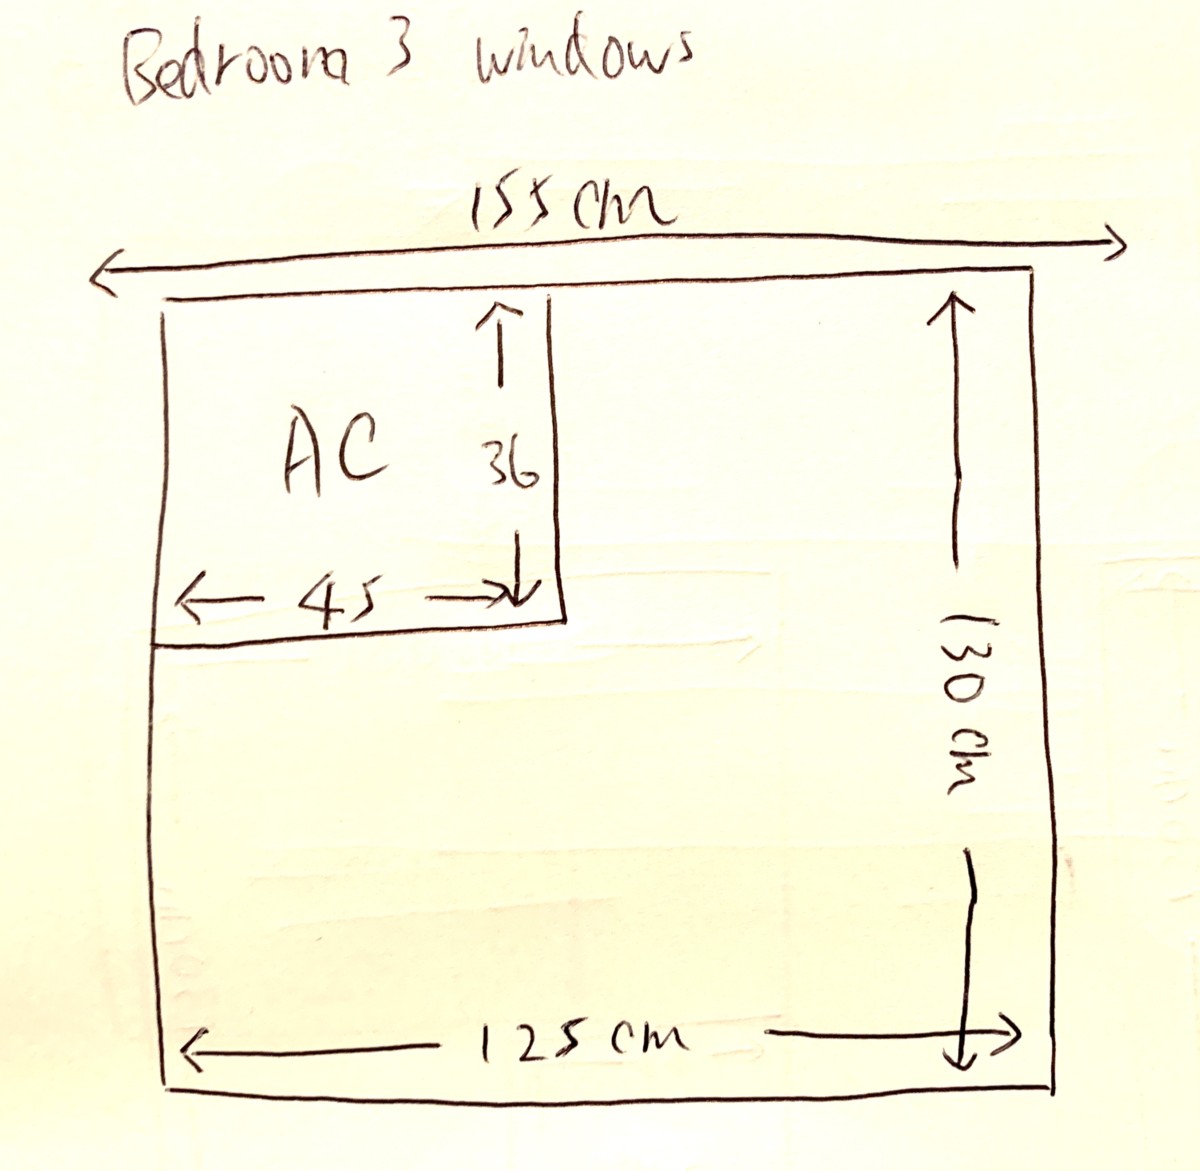 Bedroom 3 windows
155 cm
AC
36
45
130 cm
125 cm